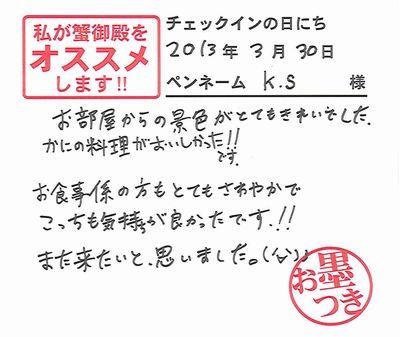 私が蟹御殿を
オススメ
します!!
チェックインの日にち
2013年 3月 30日
ペンネーム K.S 様
お部屋からの景色がとてもきれいでした.
かにの料理がおいしかった!!
です.
お食事係の方もとてもさわやかで
こっちも気持ちが良かったです.!!
また来たいと、思いました。(^^)
お墨つき